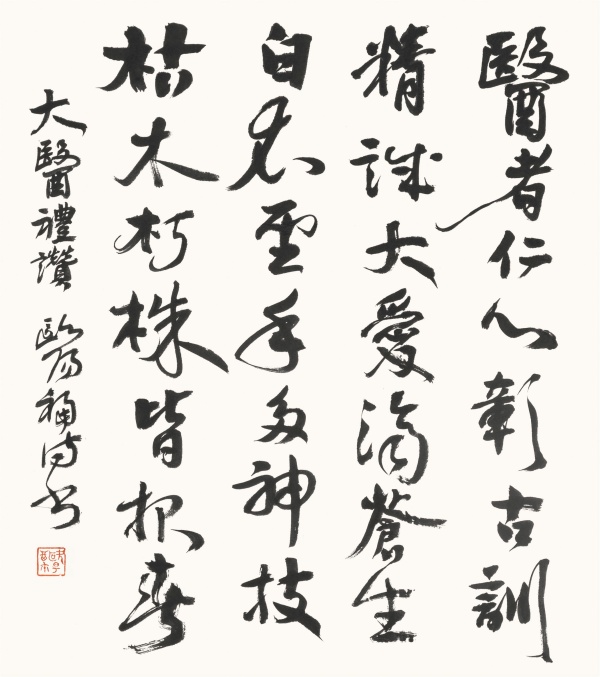 醫者仁心彰古訓
精誠大愛濟蒼生
白衣聖手多神技
枯木朽株皆报春
大醫禮讚 歐陽福诗书